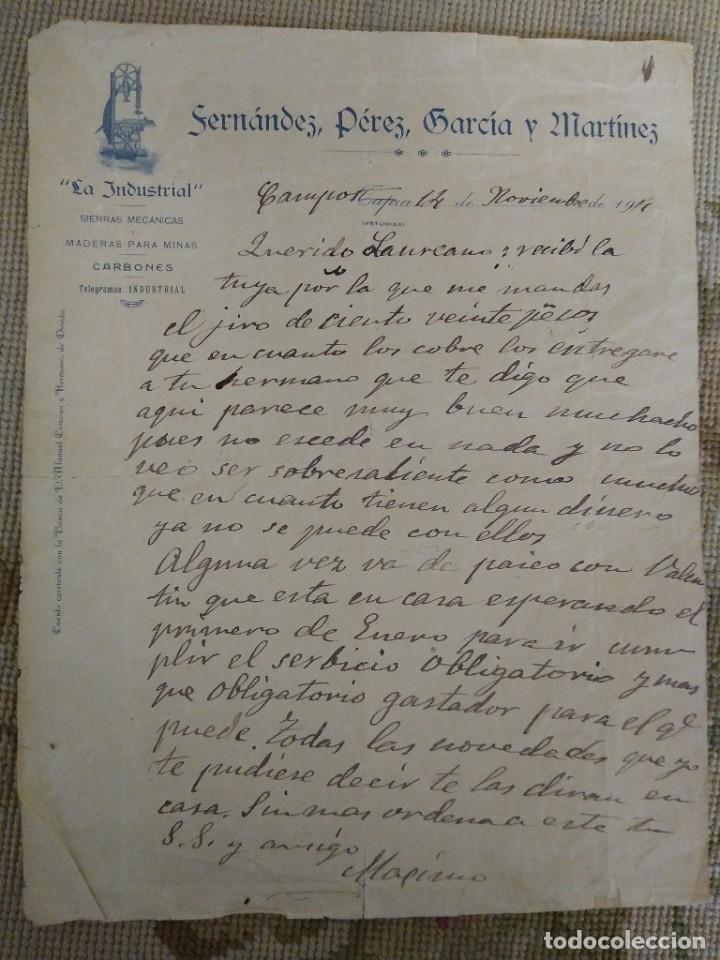 Fernández, Pérez, García y Martínez
"La Industrial"
SIERRAS MECÁNICAS
Y
MADERAS PARA MINAS
CARBONES
Telegramas: INDUSTRIAL
Cuenta corriente con la Banca de D. Manuel Caicoya y Hermano, de Oviedo.
Campos Tapia 14 de Noviembre de 191
(ASTURIAS)
Querido Laureano: recibí la
tuya por la que me mandas
el jiro de ciento veinte pesos
que en cuanto los cobre los entregare
a tu hermano que te digo que
aqui parece muy buen muchacho
pues no escede en nada y no lo
veo ser sobresaliente como muchos
que en cuanto tienen algun dinero
ya no se puede con ellos
Alguna vez va de paseo con Valen
tin que esta en casa esperando el
primero de Enero para ir cum
plir el serbicio obligatorio y mas
que obligatorio gastador para el qe
puede. Todas las novedades que yo
te pudiese decir te las diran en
casa. Sin mas ordena a este tu
S. S. y amigo
Maximo
todocoleccion.net